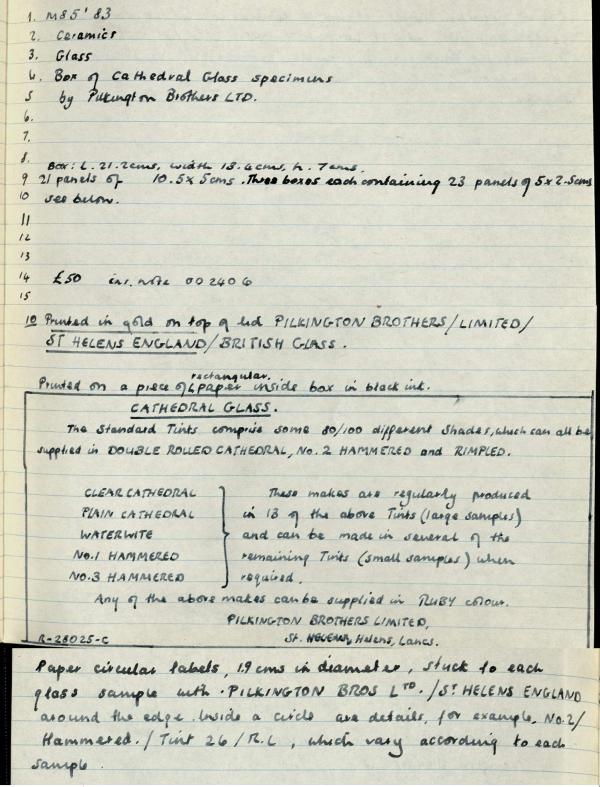 1. M85'83
2. Ceramics
3. Glass
4. Box of Cathedral Glass specimens
5 by Pilkington Brothers LTD.
6.
7.
8. Box: L. 21.2cms, width 18.4cms, h. 7cms.
9 21 panels of 10.5 x 5cms. Three boxes each containing 23 panels of 5 x 2.5cms
10 see below.
11
12
13
14 £50 ins. note 002406
15
10 Printed in gold on top of lid PILKINGTON BROTHERS/LIMITED/
ST HELENS ENGLAND/BRITISH GLASS.
rectangular.
Printed on a piece of paper inside box in black ink.
CATHEDRAL GLASS.
The Standard Tints comprise some 80/100 different shades, which can all be
supplied in DOUBLE ROLLED CATHEDRAL, No. 2 HAMMERED and RIMPLED.
CLEAR CATHEDRAL These makes are regularly produced
PLAIN CATHEDRAL in 13 of the above Tints (large samples)
WATERWITE and can be made in several of the
No.1 HAMMERED remaining Tints (small samples) when
No.3 HAMMERED required.
Any of the above makes can be supplied in RUBY colour.
PILKINGTON BROTHERS LIMITED,
R-28025-C St. Helens, Lancs.
Paper circular labels, 1.9 cms in diameter, stuck to each
glass sample with ·PILKINGTON BROS LTD./ST HELENS ENGLAND
around the edge. Inside a circle are details, for example, No.2/
Hammered./Tint 26/R.L, which vary according to each
sample.